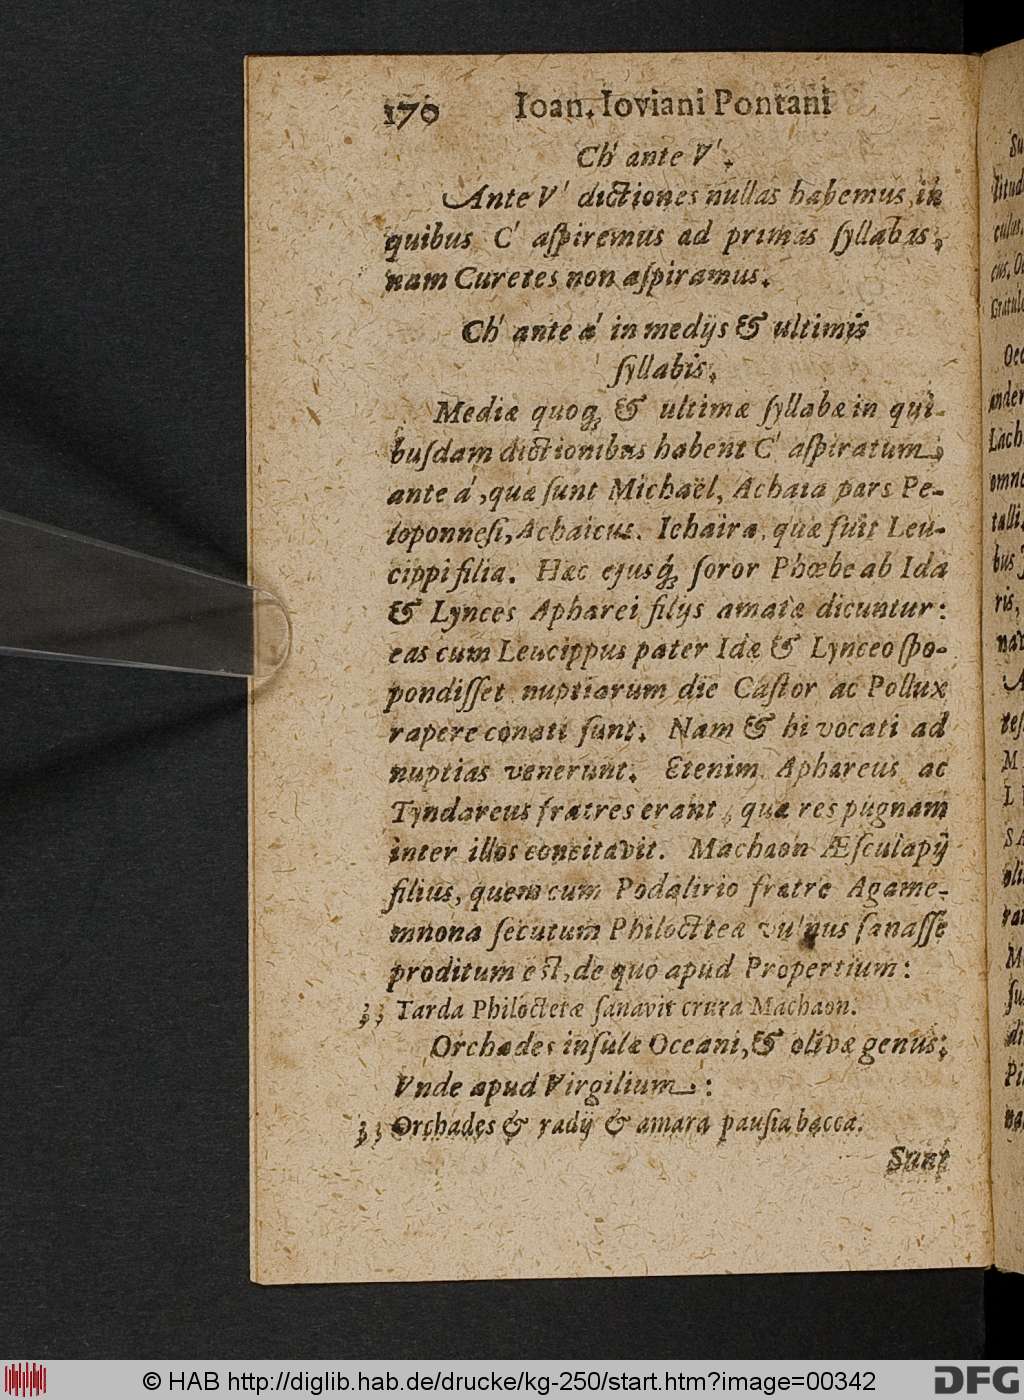 170 Ioan. Ioviani Pontani
Ch' ante V'.
Ante V' dictiones nullas habemus, in
quibus C' aſpiremus ad primas ſyllabas,
nam Curetes non aſpiramus.
Ch' ante a' in medijs & ultimis
ſyllabis.
Mediæ quoq; & ultimæ ſyllabæ in qui-
buſdam dictionibus habent C' aſpiratum,
ante a', quæ ſunt Michaël, Achaia pars Pe-
loponneſi, Achaicus. Ichaira, quæ fuit Leu-
cippi filia. Hæc ejusq; ſoror Phœbe ab Ida
& Lynces Apharei filijs amatæ dicuntur:
eas cum Leucippus pater Idæ & Lynceo ſpo-
pondiſſet nuptiarum die Caſtor ac Pollux
rapere conati ſunt. Nam & hi vocati ad
nuptias venerunt. Etenim Aphareus ac
Tyndareus fratres erant, quæ res pugnam
inter illos concitavit. Machaon Æſculapij
filius, quem cum Podalirio fratre Agame-
mnona ſecutum Philocteteæ vulnus ſanaſſe
proditum eſt, de quo apud Propertium:
Tarda Philoctetæ ſanavit crura Machaon.
Orchades inſulæ Oceani, & olivæ genus:
Vnde apud Virgilium:
Orchades & radij & amara pauſia bacca.
Sunt
© HAB http://diglib.hab.de/drucke/kg-250/start.htm?image=00342
DFG